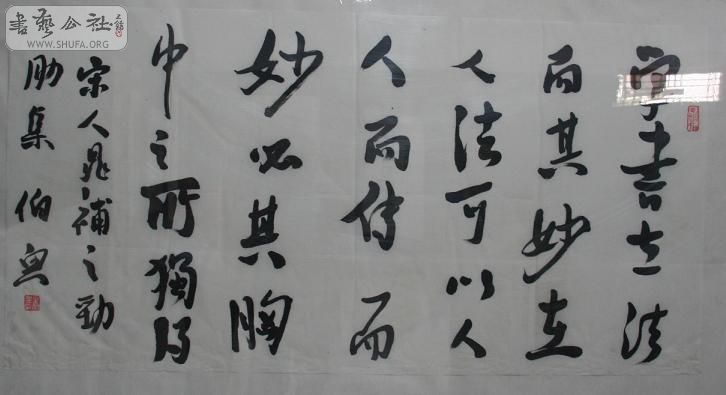 書藝公社
WWW.SHUFA.ORG
學書在法
而其妙在
人法可以人
人而傳而
妙必其胸
中之所獨得
宋人晁補之勁
肋集 伯